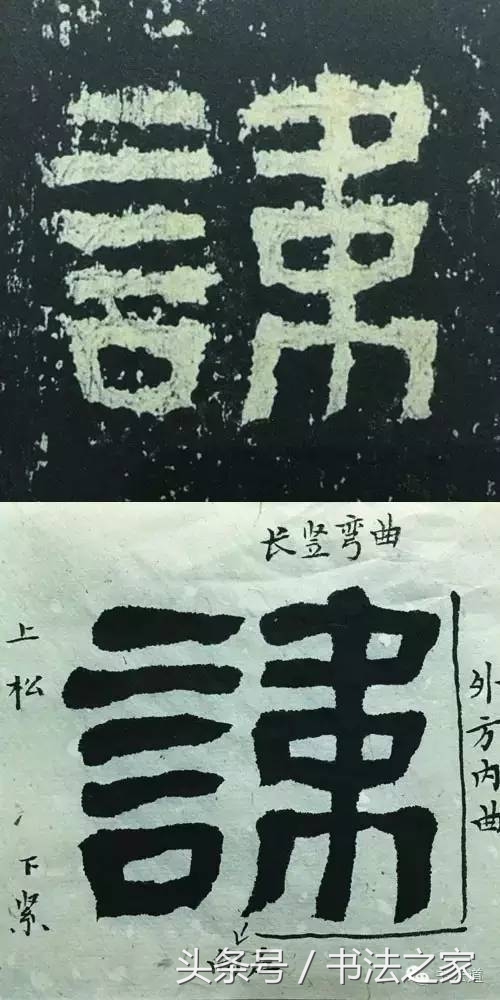 諱
长竖弯曲
諱
上松
下紧
外方内曲
头条号／书法之家